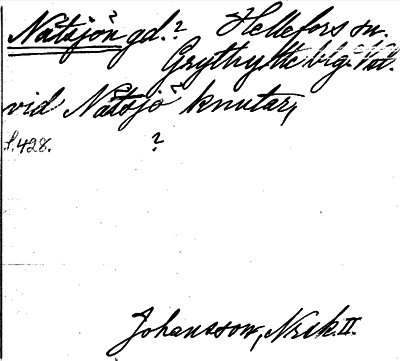 Nätsjön gd.? Hellefors sn.
Grythytte blg. Vstm.
vid Nätsjö knutar,
s. 428. ?
Johansson, Nsek. II.